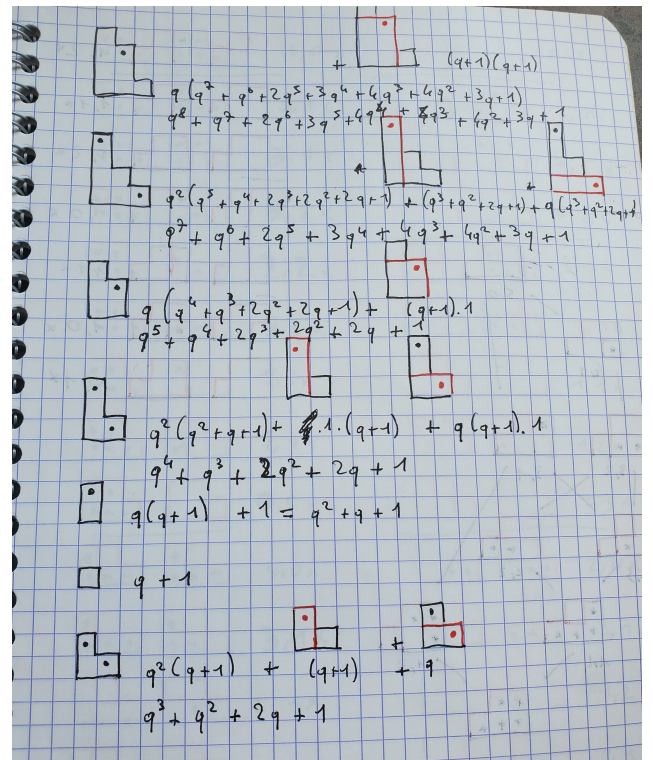 + (q+1)(q+1)
q(q⁷ + q⁶ + 2q⁵ + 3q⁴ + 4q³ + 4q² + 3q + 1)
q⁸ + q⁷ + 2q⁶ + 3q⁵ + 4q⁴ + q³ + 4q² + 3q + 1
+ +
q²(q⁵ + q⁴ + 2q³ + 2q² + 2q + 1) + (q³ + q² + 2q + 1) + q(q³ + q² + 2q + 1
q⁷ + q⁶ + 2q⁵ + 3q⁴ + 4q³ + 4q² + 3q + 1
q(q⁴ + q³ + 2q² + 2q + 1) + (q+1).1
q⁵ + q⁴ + 2q³ + 2q² + 2q + 1
q²(q² + q + 1) + .1.(q+1) + q(q+1).1
q⁴ + q³ + 2q² + 2q + 1
q(q+1) + 1 = q² + q + 1
q + 1
+
q²(q+1) + (q+1) + q
q³ + q² + 2q + 1